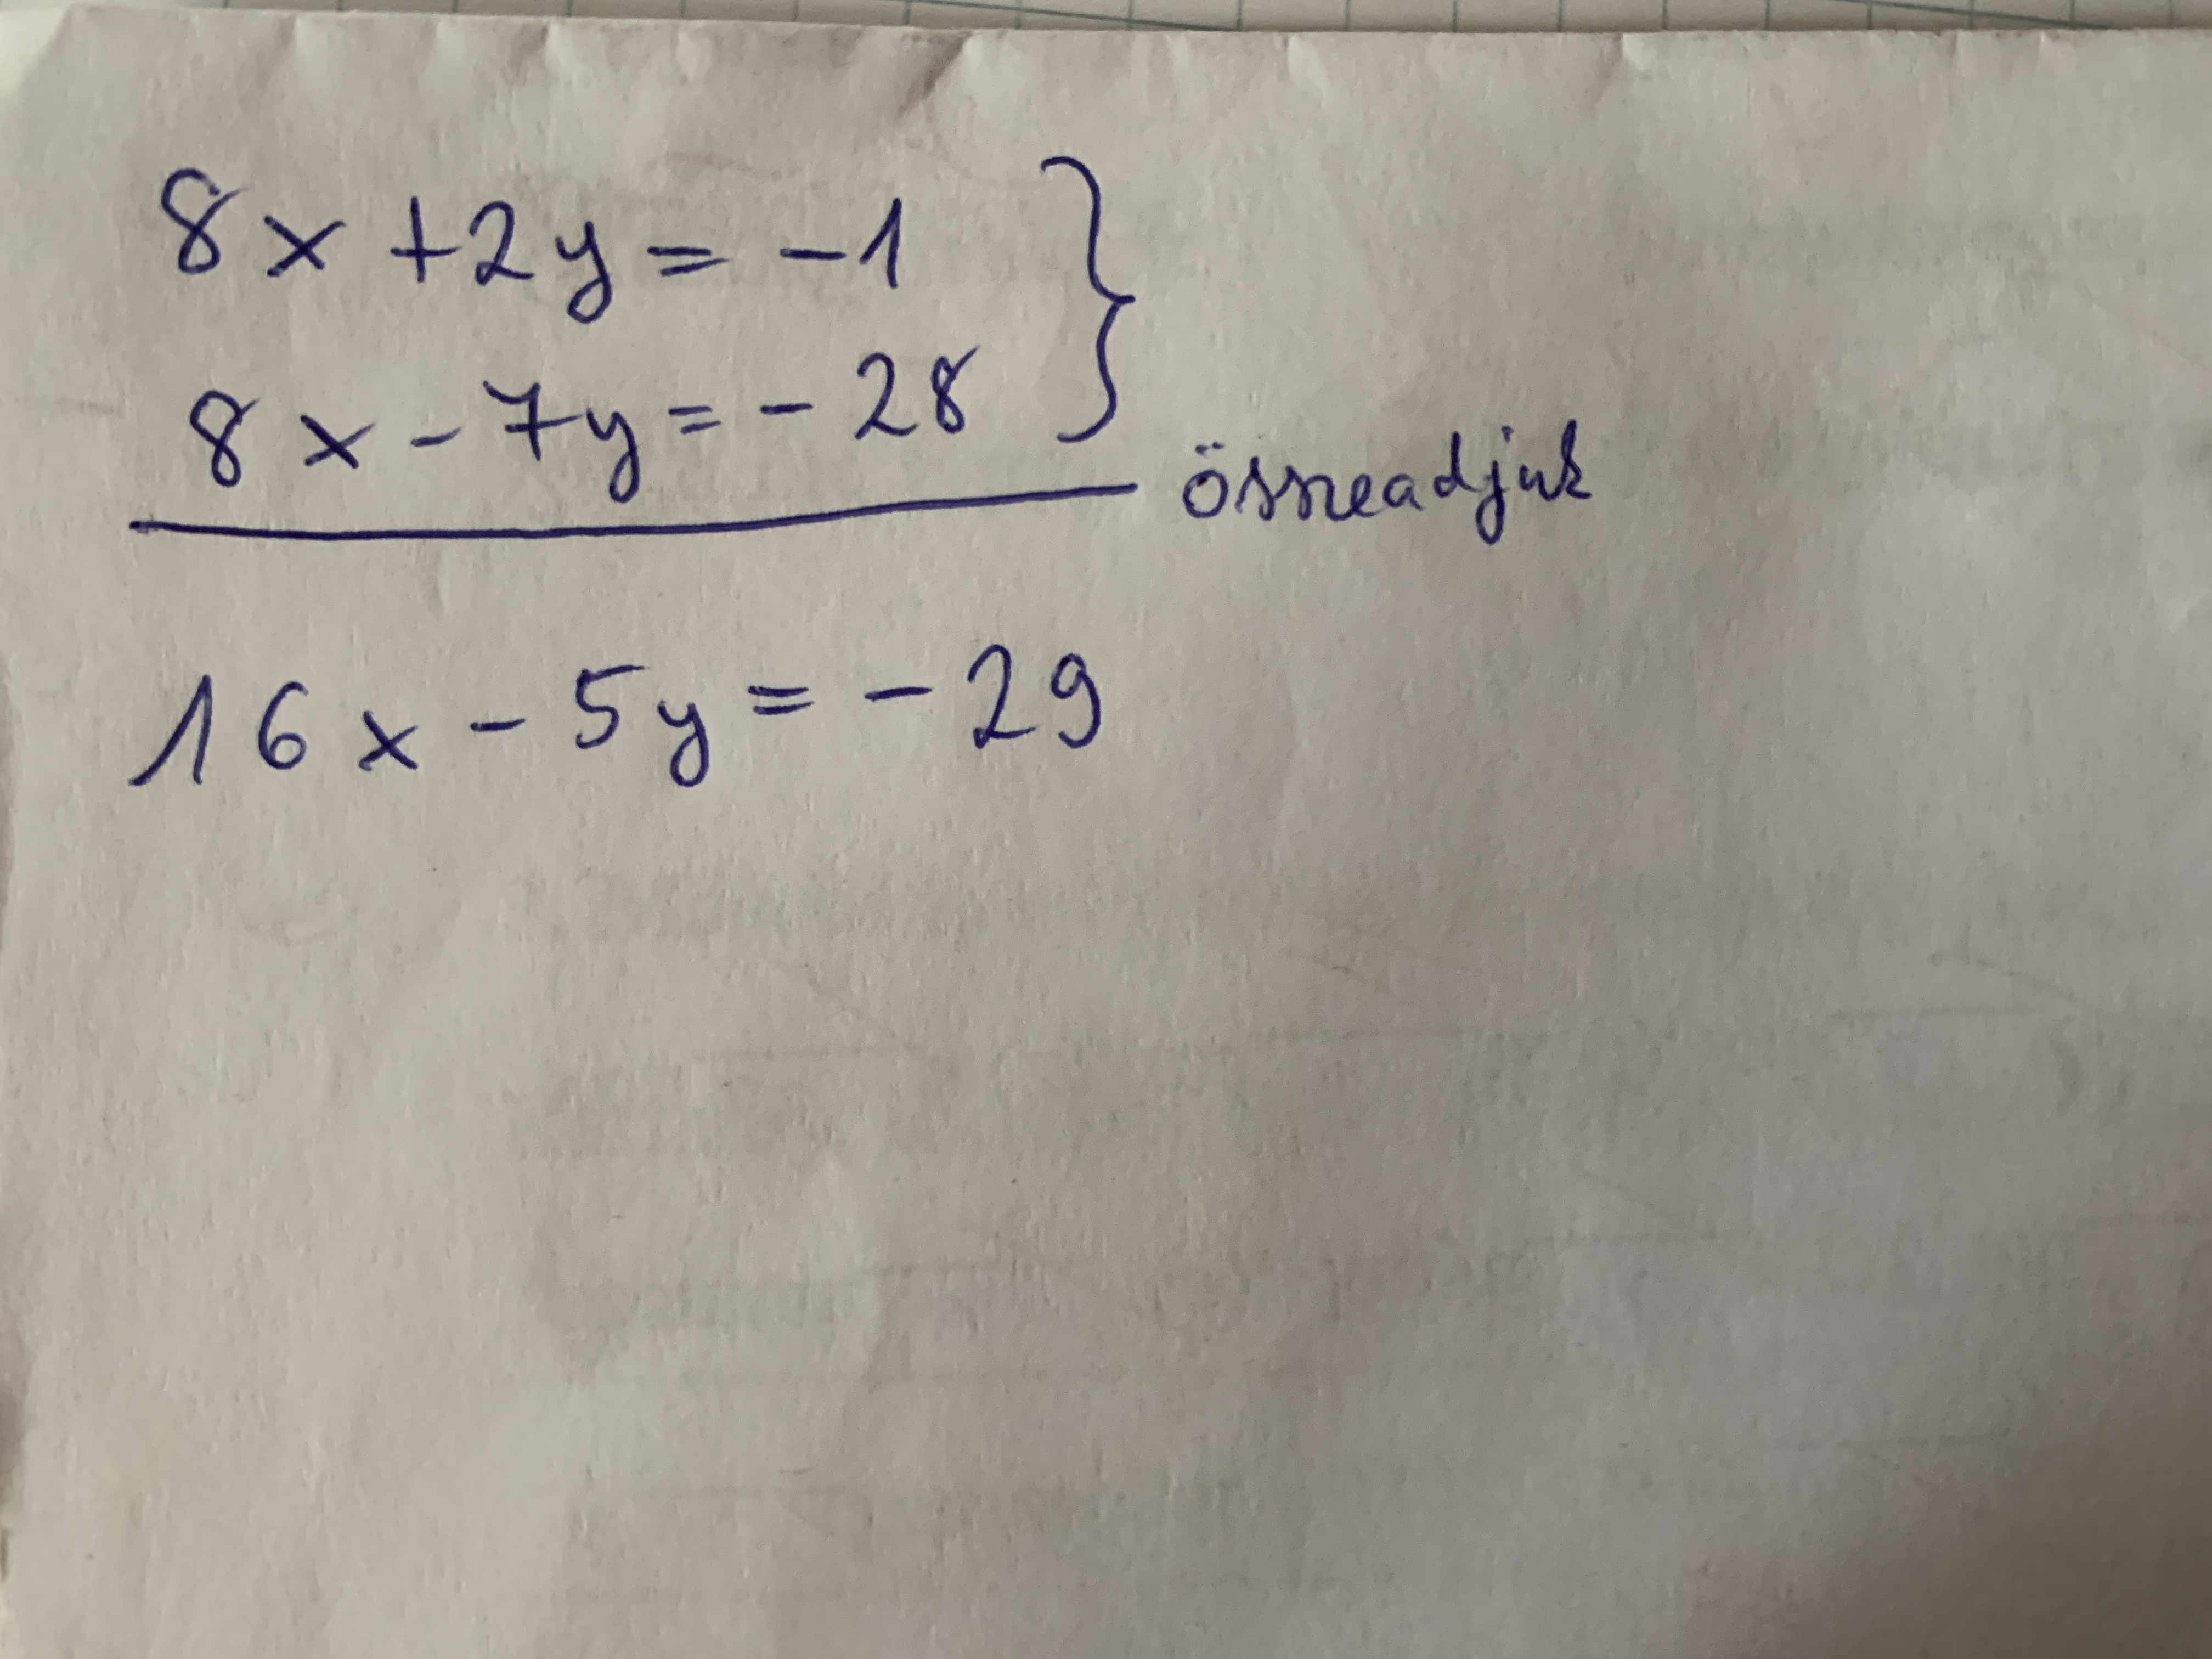 8x + 2y = -1
8x - 7y = -28
összeadjuk
16x - 5y = -29